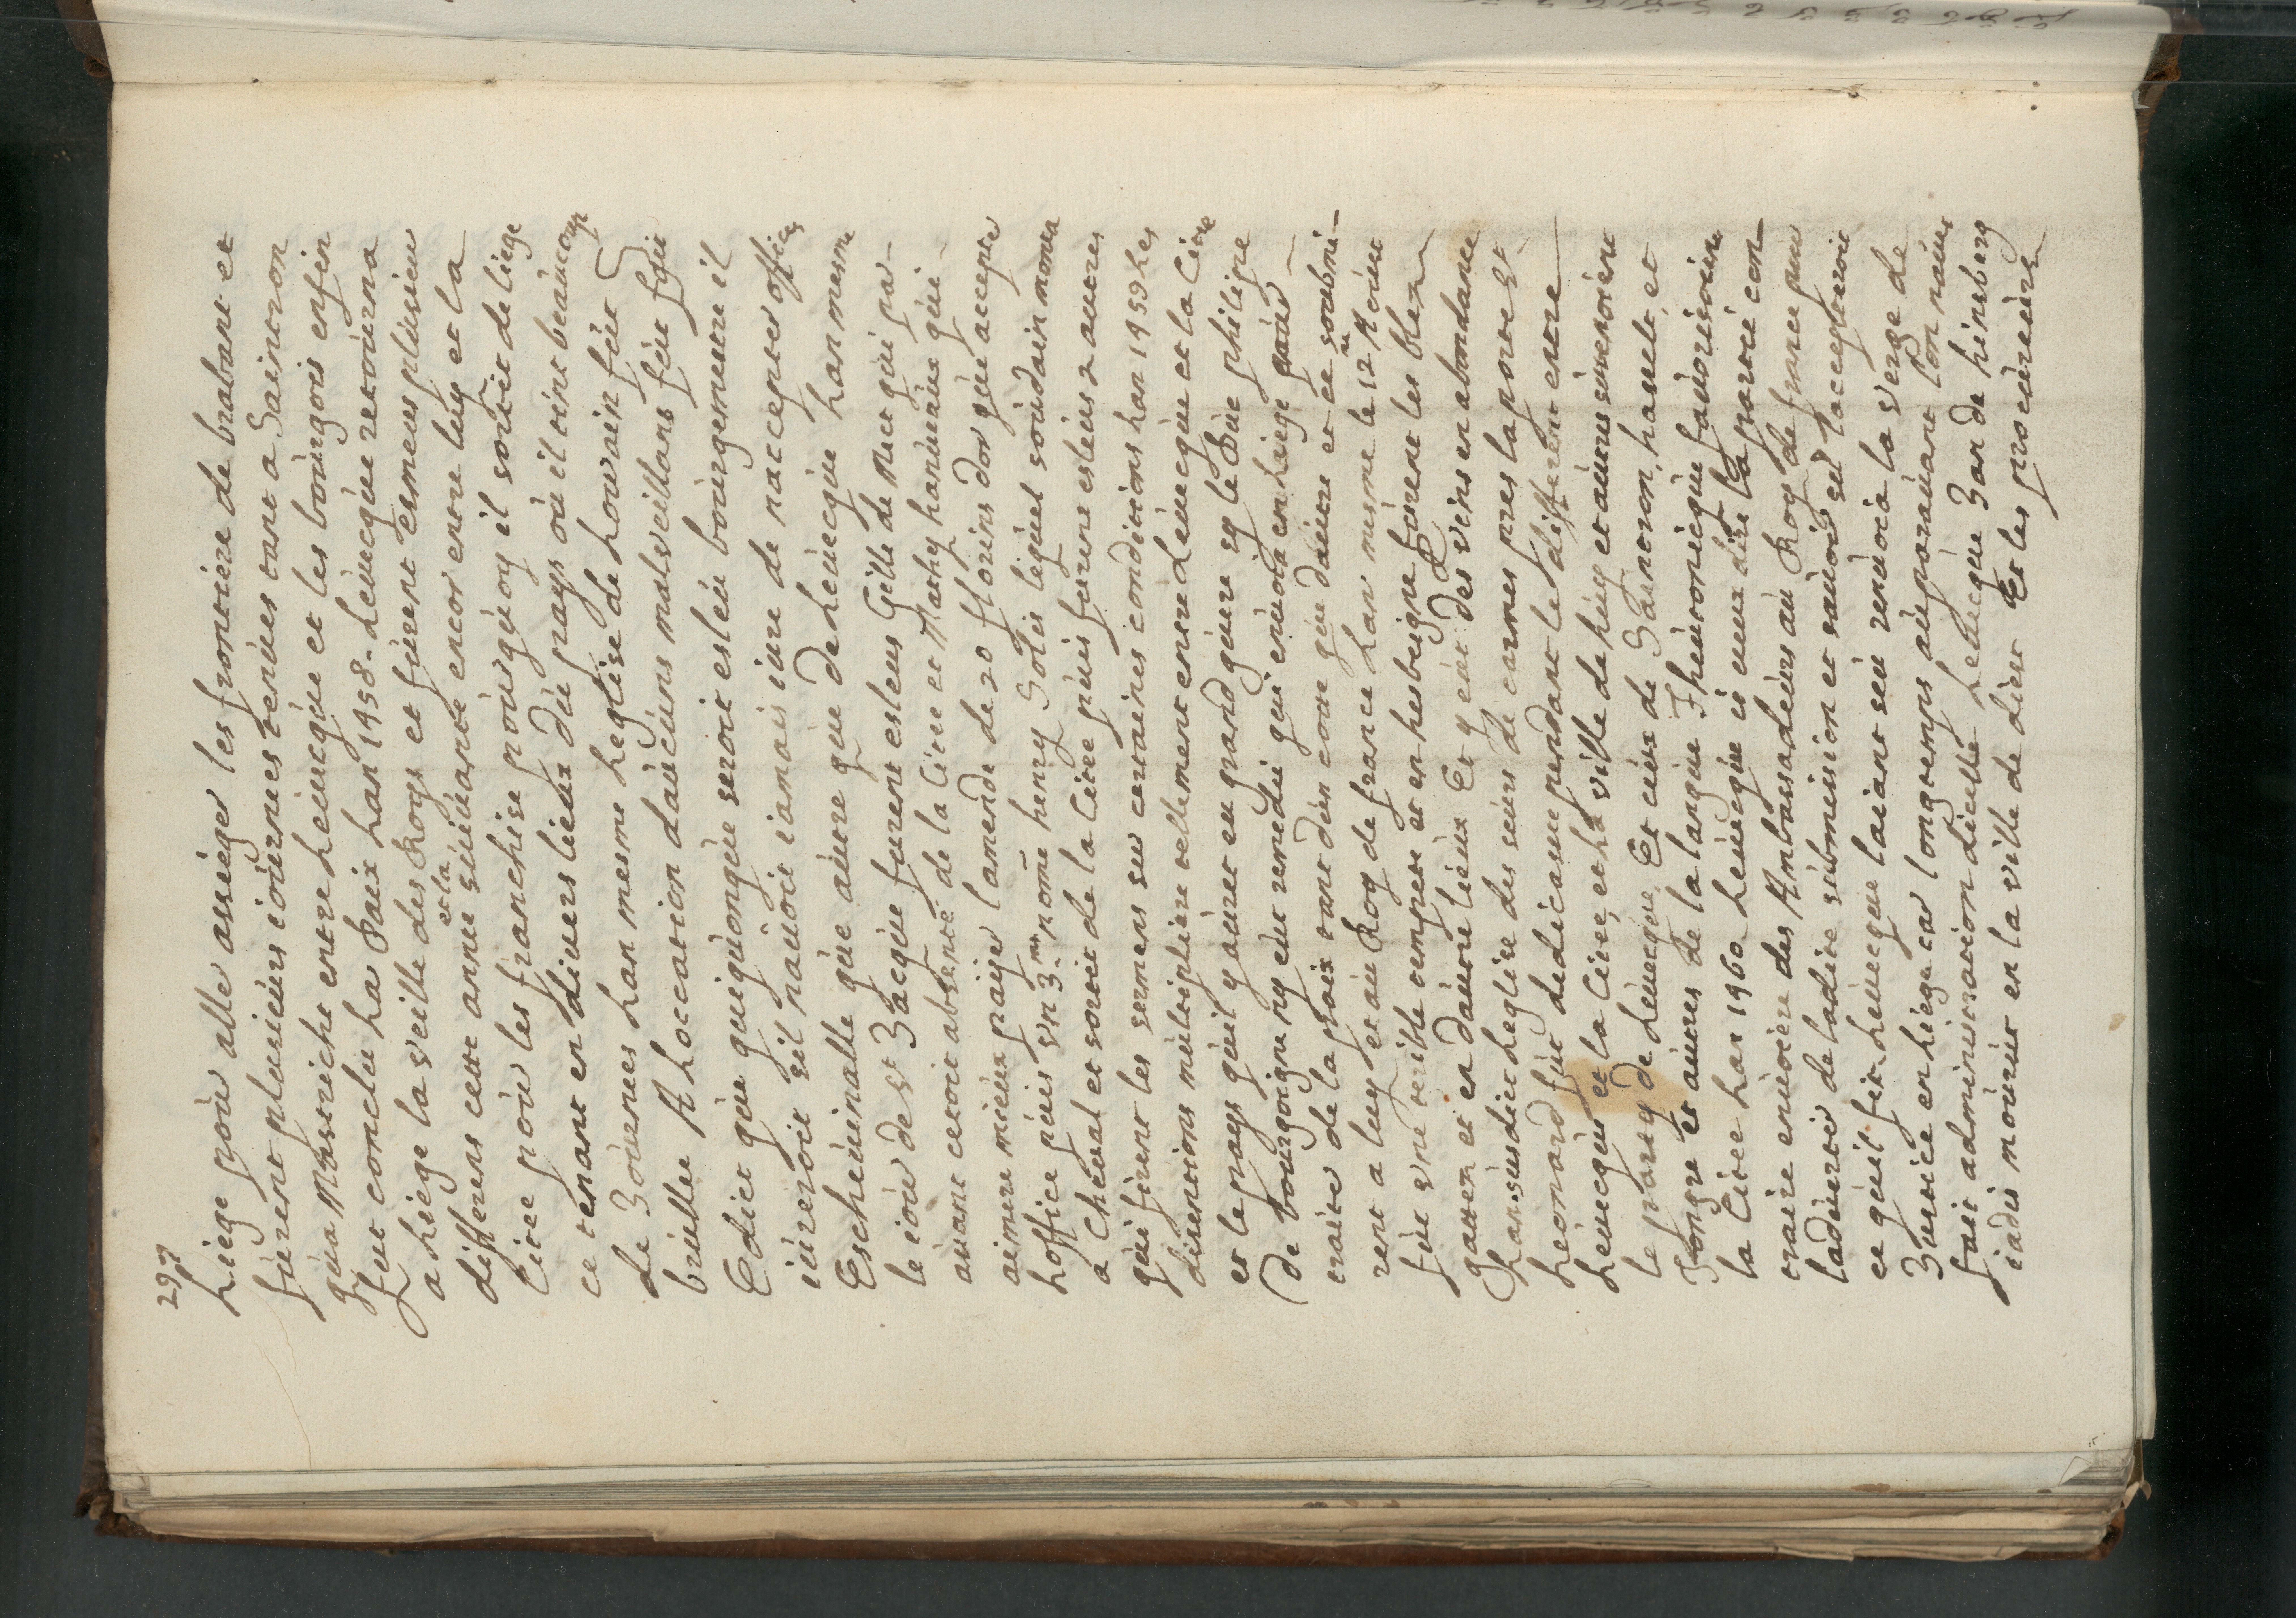 297
Liege poùr aller assieger les frontiere de brabant et
fùrent plusieùrs ioùrnees tenùes tant a Saintron
qùa Mastricht entre Leùecqùe et les boùrgois enfin
fut conclùt La Paix Lan 1458. Leùecqùe retoùrna
a Liege la veille des Roys et fùrent esmeus plùsieùrs
differens cette année et la sùiùante encor entre lùy et la
Citee poùr les franchise poùrqùoy il sortit de liege
ce tenant en diùers lieùx dù pays où il tint beaùcoup
de Joùrnees Lan mesme Leglise de Lovvain fùt
brùslee A Loccation daùcùns malveillans fùt fait
Edict qùe qùiqùonqùe seroit esleù boùrgemestre il
iùreroit sil naùoit iamais iùre de naccepter offices
Escheùinalle qùe aùtre qùe de Leùecqùe Lan mesme
le ioùr de St Jacqùe fùrent esleus Gille de Mets qùi par-
aùant estoit absenté de la Citee et Mathy hanùeùx qùi
aimere mieùx paijer lamende de 20 florins dor qùe accepter
Loffice pùis vn 3.me nomē henry Solis leqùel soùdain monta
a Cheùal et sortit de la Citee pùis furent esleùs 2 autres
qùi firent les sermens sur certaines conditions Lan 1459 Les
disentions mùltipliere tellement entre Leùecqùe et la Citee
et le pays qùil y aùret eu grand gùere sy le Dùc philippe
de boùrgoigne ny eùt remedié qui enùoia en Liege poùr
traiter de la paix tant dùn coste qùe daùtre et ce soùbmi-
rent a lùy et aù Roy de france Lan mesme le 12.me Aoùst
fùt vne terrible tempeste et en hesbeigne fùrent les bleds
gastez et en daùtre lieùx Et y eùt des vins en abondance
Lansùsdict Leglise des seùrs de carmes pres la porte St
Leonard fùt dedicassee pendant le different entre
Leùecqùe et la Citee, et La ville de hùy et aùtres sùivtenoient
le party de Leùecqùe Et ceùx de Saintron, hasselt, et
Tongre et aùtres de la langùe Theùtonicqùe faùorisoient
la Citee Lan 1460 Leùecqùe is eùx dire la partie con-
traire enùoiere des Ambassadeùrs aù Roy de france pour
laduertir de ladite sùbmission et saùoir sil laccepteroit
ce qùil fit. Leùecqùe laiant seù renùoia la verge de
Justice en Liege car longtemps aùparaùant lon naùoit
fait administration dicelle Leùecqùe Jan de hinsberg
iadis moùrùt en la ville de dieste Et les procùreùrs